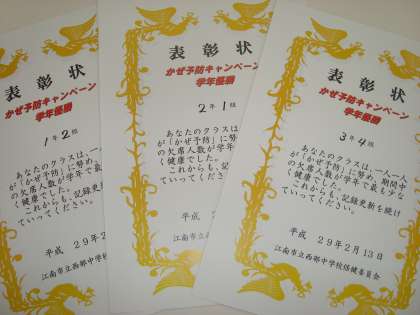 表彰状
かぜ予防キャンペーン
学年優勝
1年2組
あなたのクラスは、一人一
が「かぜ予防」に努め、
の欠席人数が学年で
く健康でした。
これからも、記録
ていってください。
平成 29年2
江南市立西部中学校
表彰状
かぜ予防キャンペーン
学年優勝
2年1組
あなたのクラスは
が「かぜ予防」に
の欠席人数が学年
く健康でした。
これからも、記
ていってください
平成
江南市立西部中
表彰状
かぜ予防キャンペーン
学年優勝
3年4組
あなたのクラスは、一人一人
が「かぜ予防」に努め、期間中
の欠席人数が学年で最も少な
く健康でした。
これからも、記録更新を続け
ていってください。
平成 29年2月13日
江南市立西部中学校保健委員会